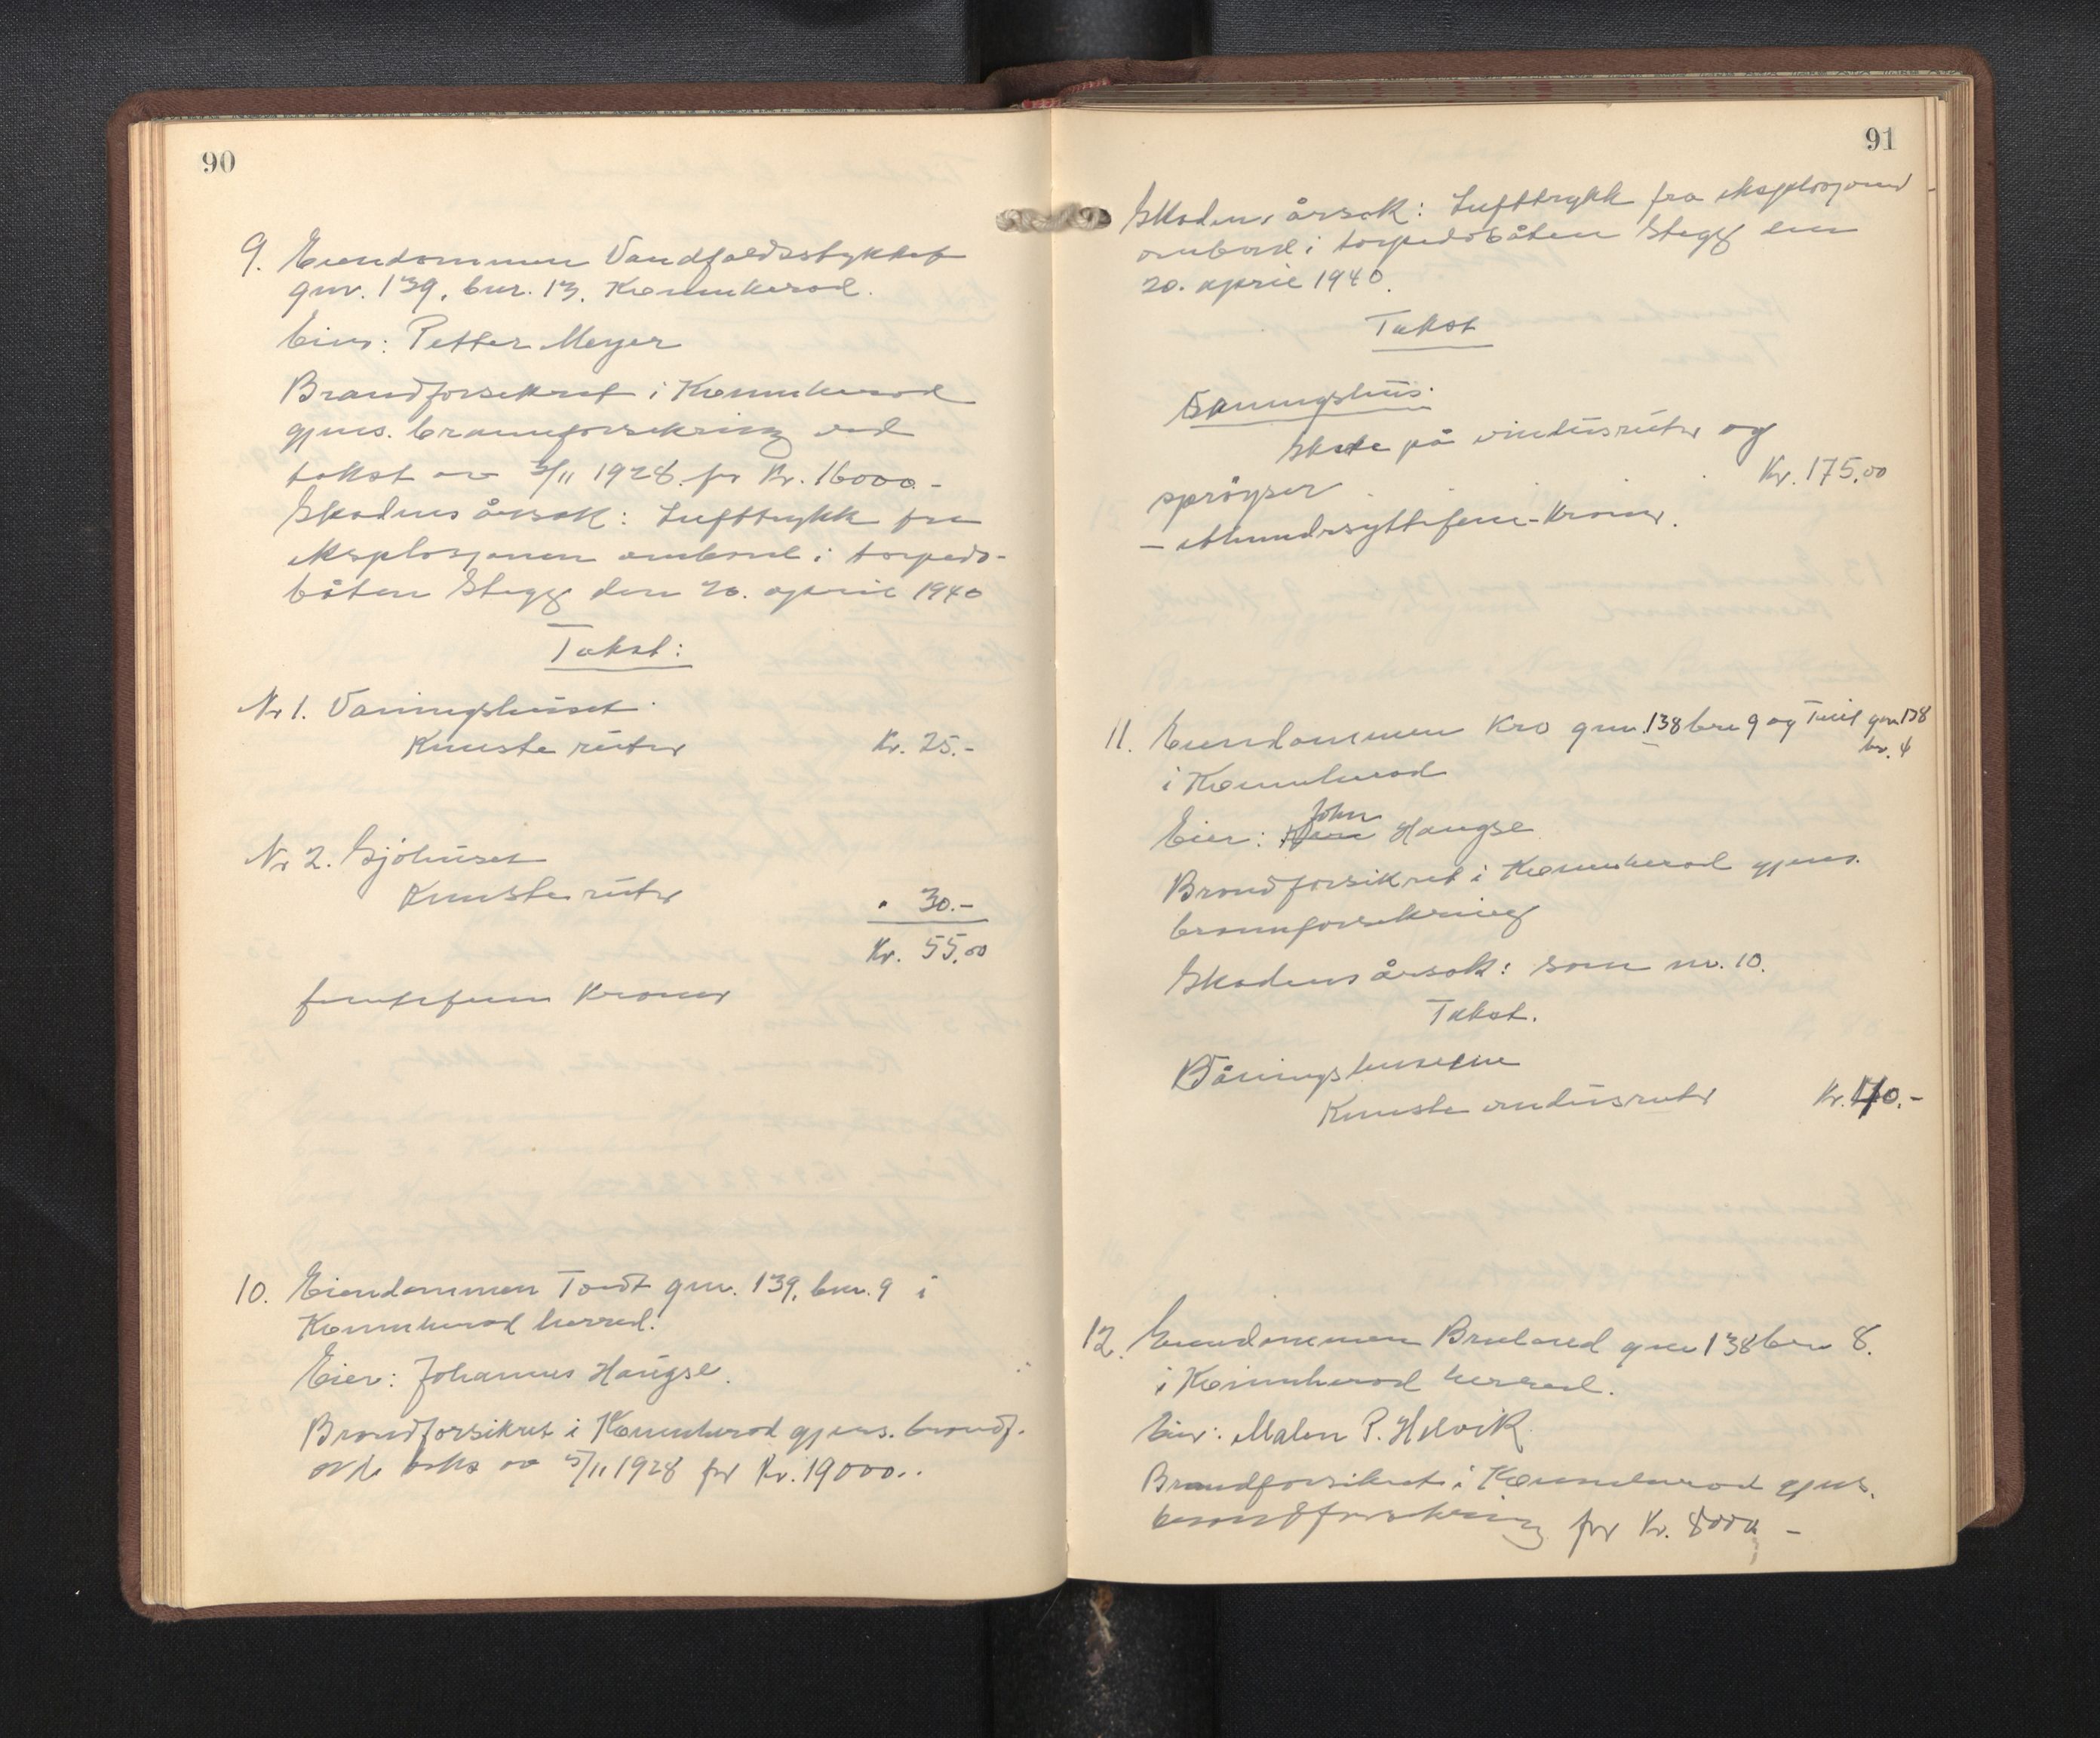 90
9. Eiendommen Vandfaldsstykket
gnr. 139, bnr. 13. Kvinnherad.
Eier: Petter Meyer
Brandforsikret i Kvinnherad
gjens. brannforsikring ved
takst av 5/11 1928 for Kr. 16000.-
Skadens årsak: Lufttrykk fra
eksplosjonen ombord i torpedo-
båten Stegg den 20. april 1940
Takst:
Nr 1. Vaningshuset
Knuste ruter Kr. 25.-
Nr 2. Sjöhuset
Knuste ruter " 30.-
Kr. 55,00
femtifem Kroner
10. Eiendommen Tovdt gnr. 139, bnr. 9 i
Kvinnherad herred.
Eier: Johannes Haugse.
Brandforsikret i Kvinnherad gjens. brandf.
takst av 5/11 1928 for Kr. 19000..
91
Skadens årsak: Lufttrykk fra eksplosjonen
ombord i torpedobåten Stegg den
20. april 1940.
Takst
Vaningshus:
Skade på vindusruter og
sprøyser Kr. 175,00
- ethundresyttifem - Kroner.
11. Eiendommen Kro gnr. 138 bnr 9 og gnr 138
bnr. 4
i Kvinnherad
John
Eier: Haugse
Brandforsikret i Kvinnherad gjens.
brannforsikring
Skadens årsak: som nr. 10.
Takst.
Våningshusene
Knuste vindusruter Kr. 40.-
12. Eiendommen Bruland gnr 138 bnr 8.
i Kvinnherad herred.
Eier: Malen P. Helvik
Brandforsikret i Kvinnherad gjens.
brandforsikring for Kr. 8000 -